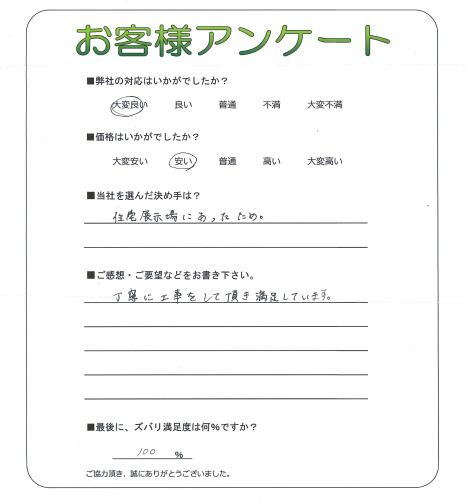 お客様アンケート
■弊社の対応はいかがでしたか？
大変良い 良い 普通 不満 大変不満
■価格はいかがでしたか？
大変安い 安い 普通 高い 大変高い
■当社を選んだ決め手は？
住宅展示場にあったため。
■ご感想・ご要望などをお書き下さい。
丁寧に工事をして頂き満足しています。
■最後に、ズバリ満足度は何%ですか？
100 %
ご協力頂き、誠にありがとうございました。